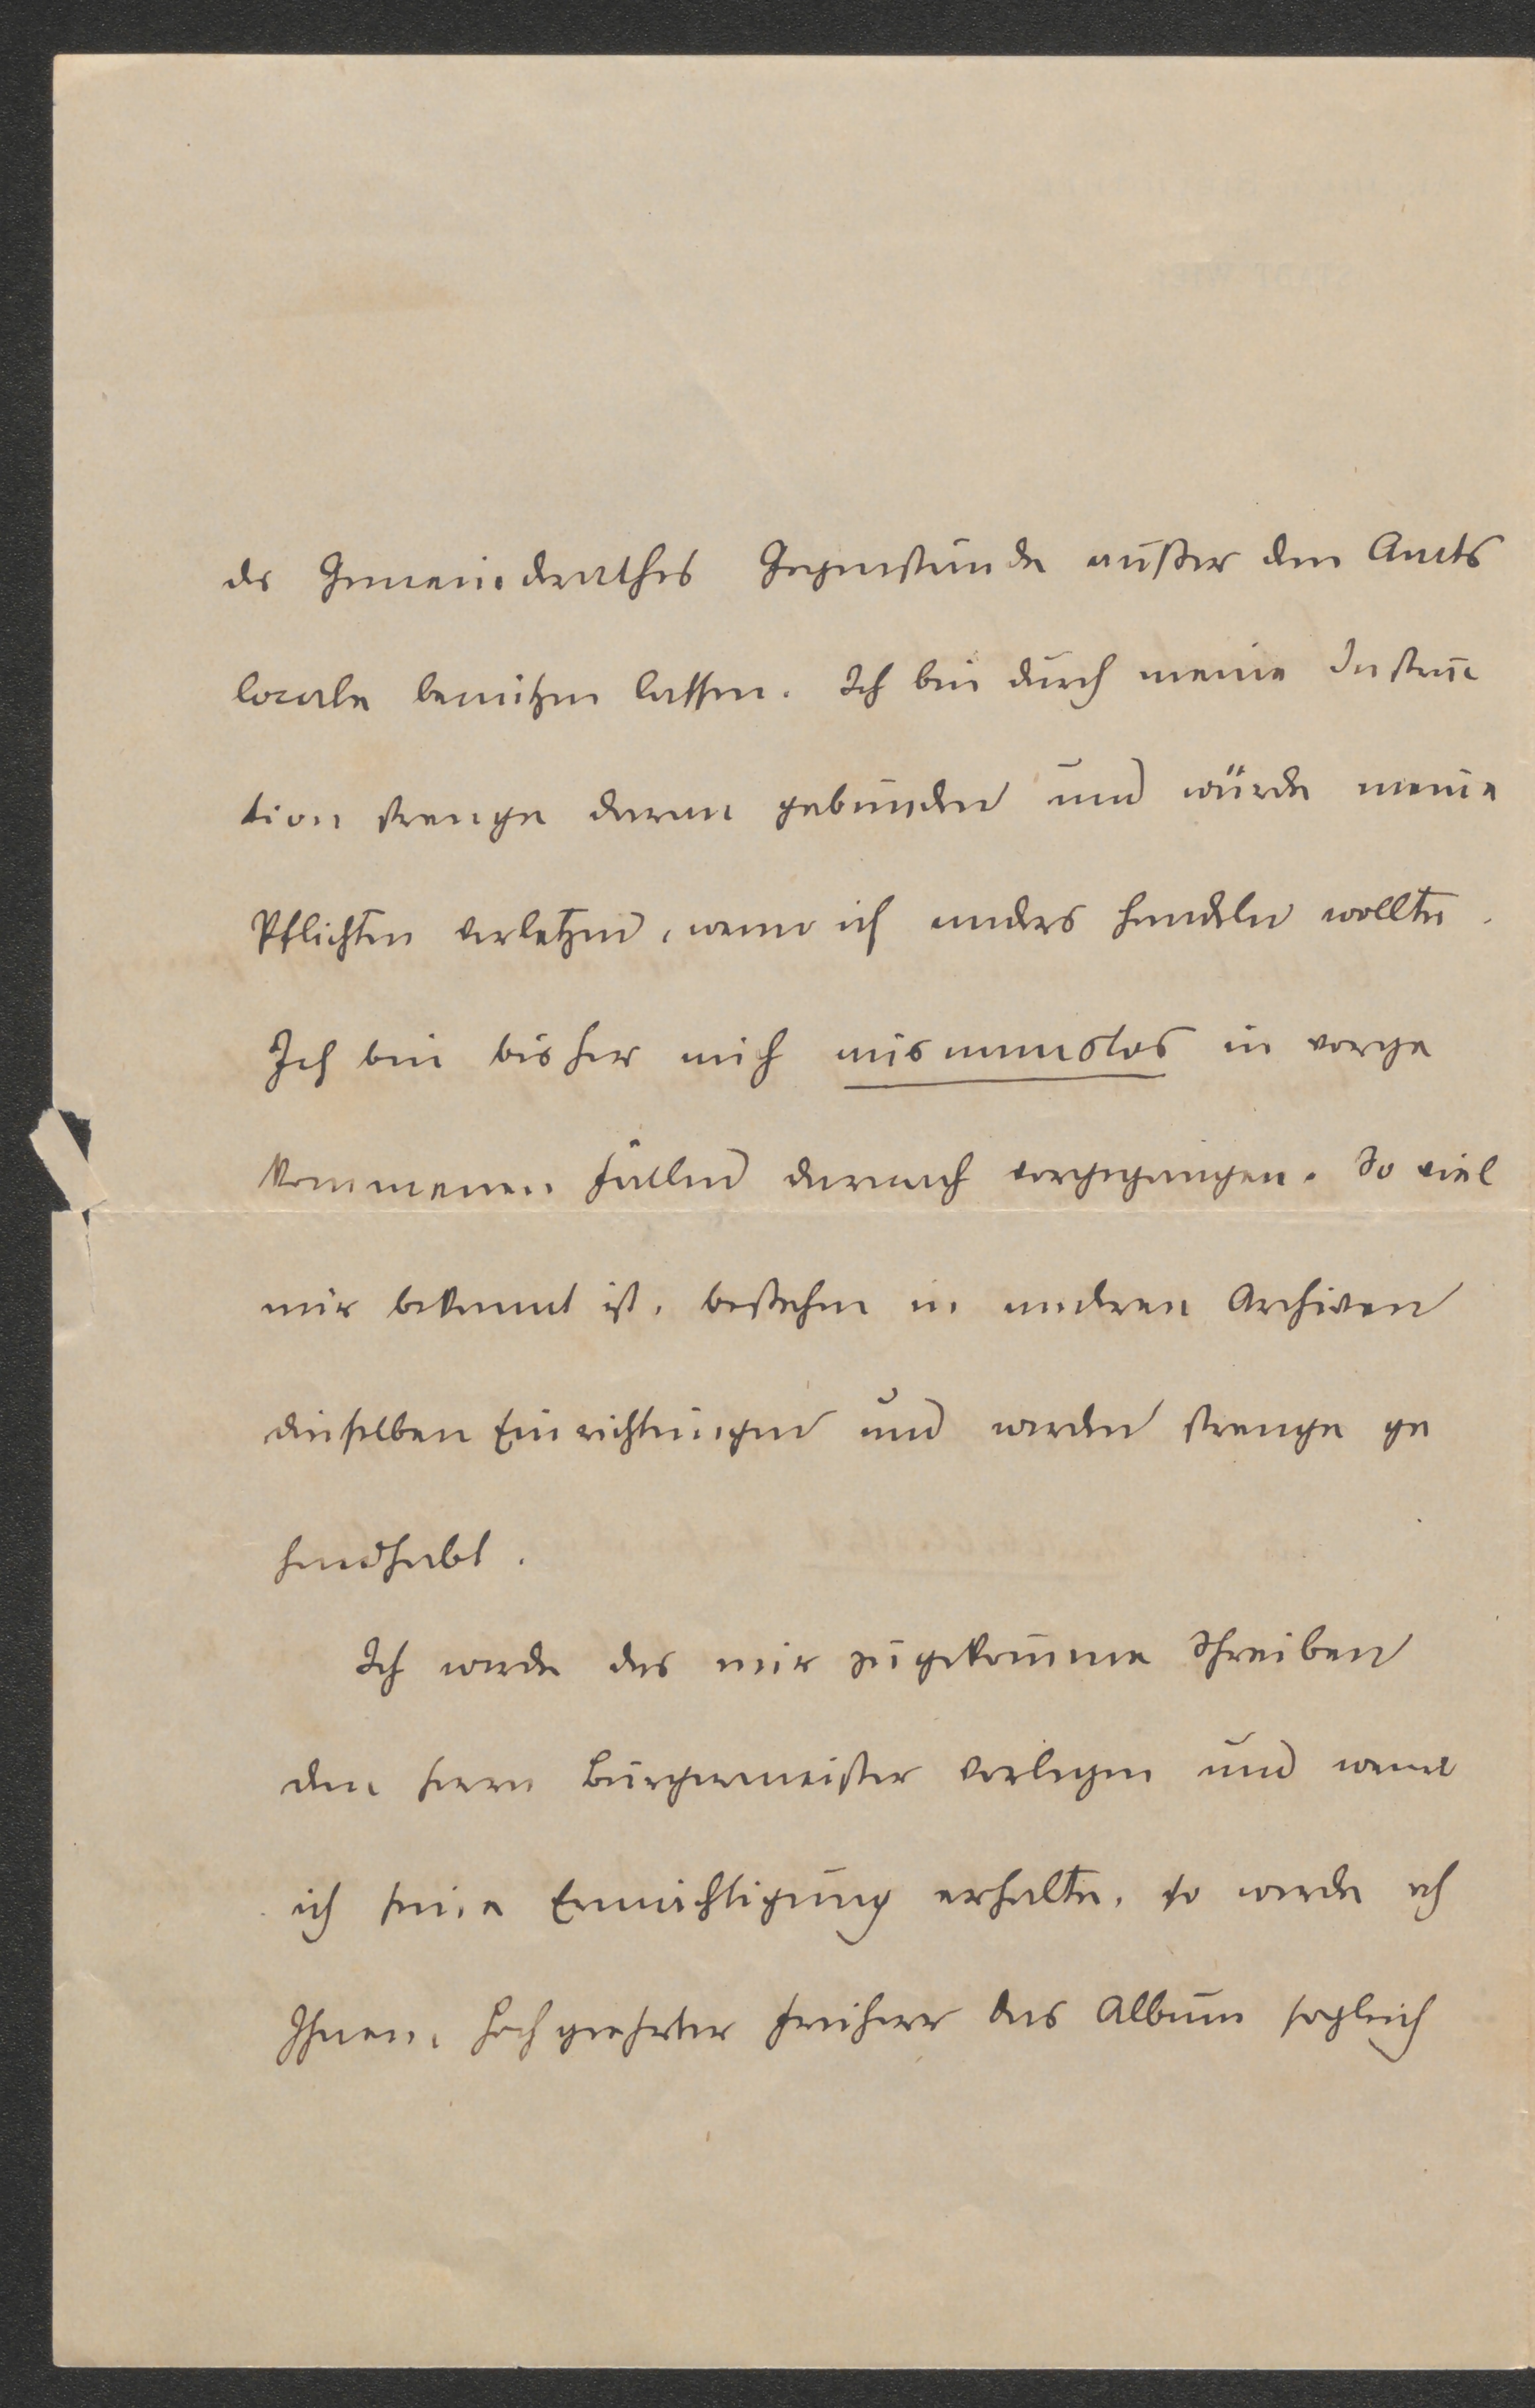 des Gemeinderathes Gegenstände außer dem Amts
locale benützen lassen. Ich bin durch meine Instruc
tion strenge daran gebunden und würde meine
Pflichten verletzen, wenn ich anders handeln wollte.
Ich bin bisher auch ausnamslos in vorge
kommenen Fällen darnach vorgegangen. So viel
mir bekannt ist, bestehen in anderen Archiven
dieselben Einrichtungen und werden strenge ge
handhabt.
Ich werde das mir zugekomme Schreiben
dem Herrn Bürgermeister vorlegen und wenn
ich seine Ermächtigung erhalte, so werde ich
Ihnen, hochgeehrter Freiherr das Album sogleich